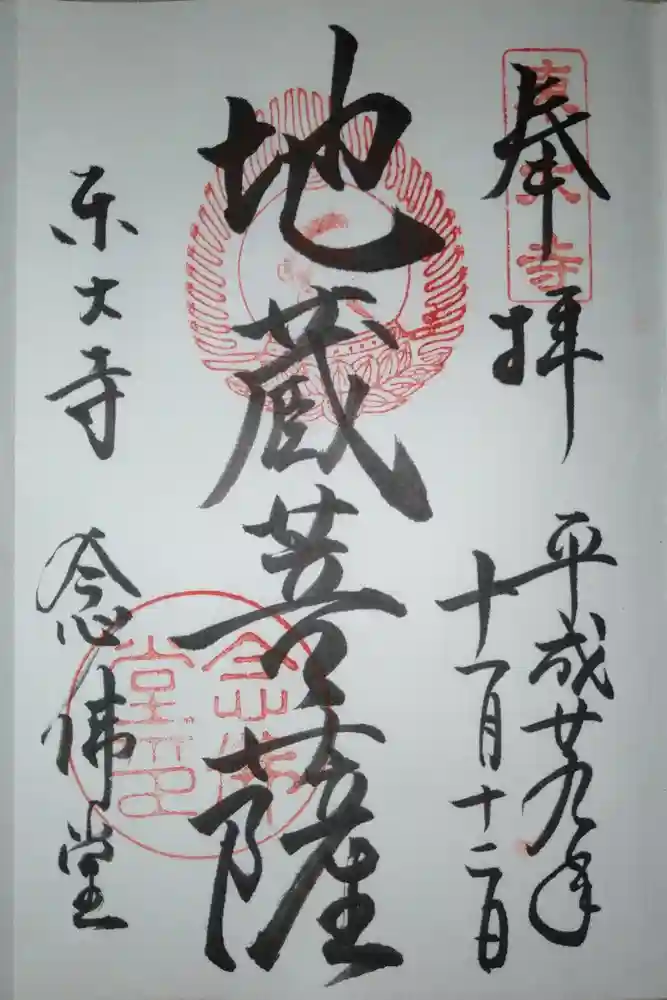 奉拝
東大寺
平成廿九年
十一月十二日
地蔵菩薩
東大寺 念佛堂
念佛堂印